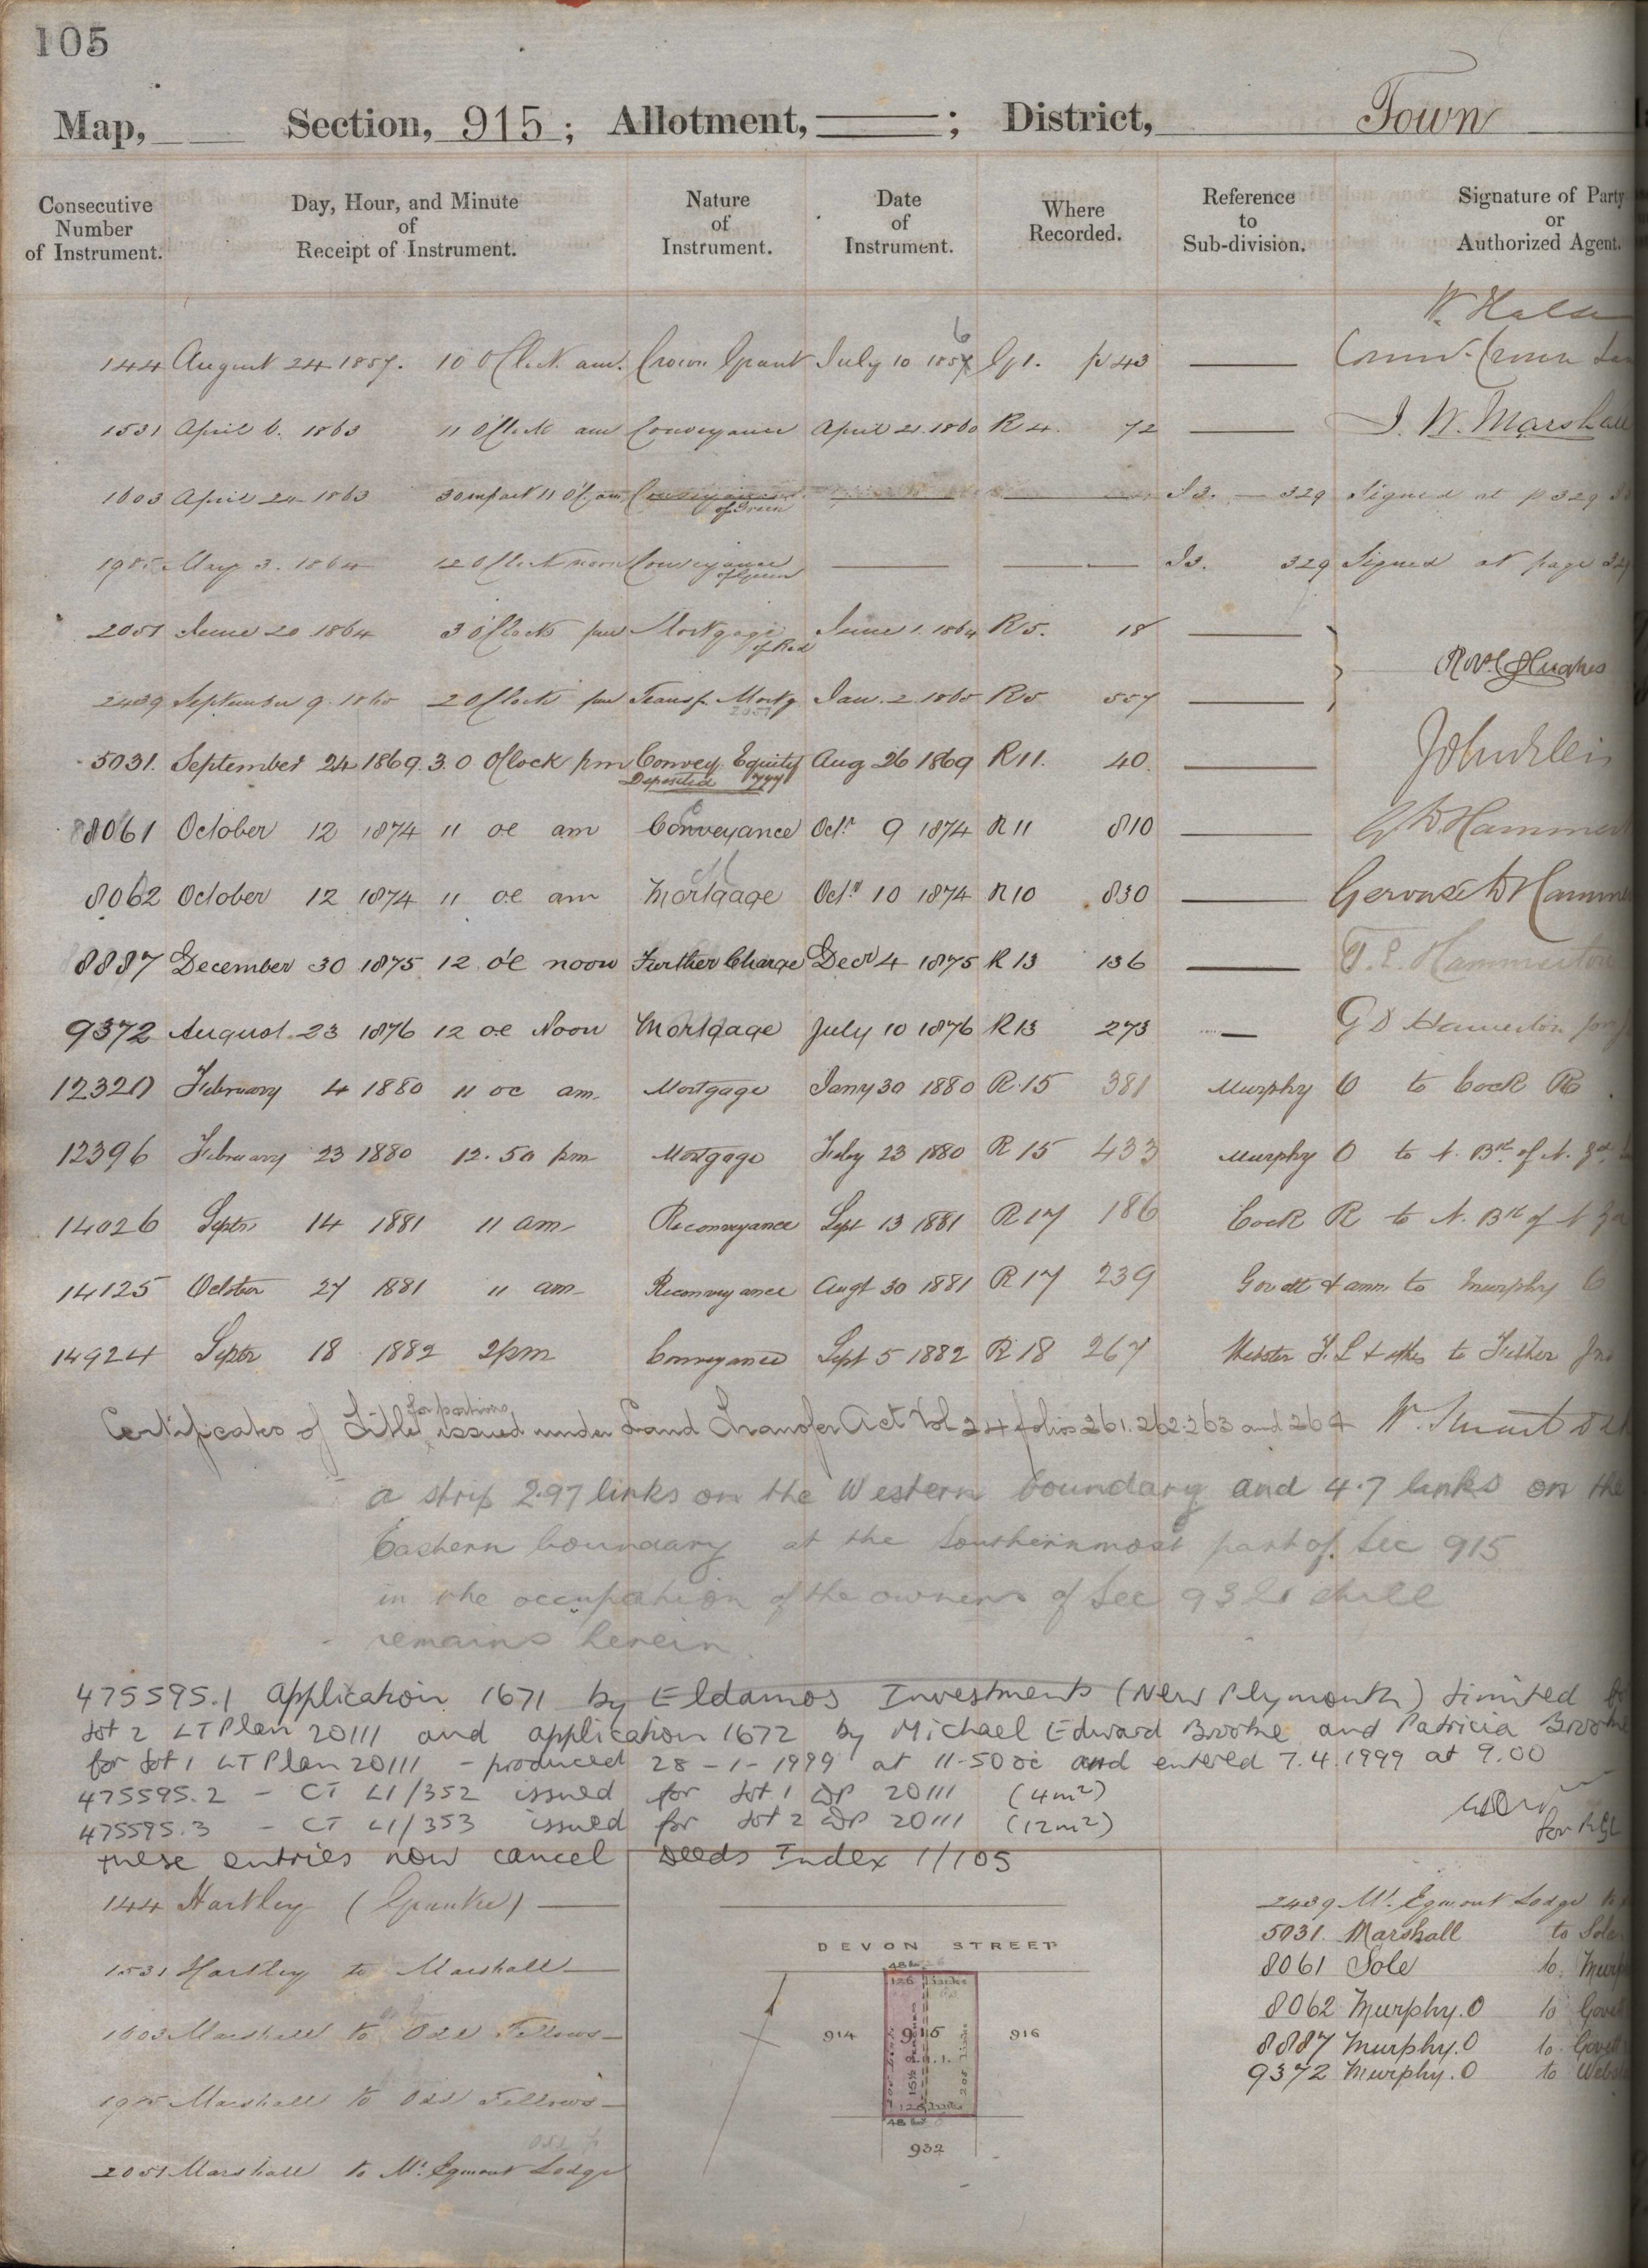 105
Map, Section, 915; Allotment, ; District, Town
Consecutive Number of Instrument.
Day, Hour, and Minute of Receipt of Instrument.
Nature of Instrument.
Date of Instrument.
Where Recorded.
Reference to Sub-division.
Signature of Party or Authorized Agent.
144 August 24 1857. 10 O'Clock am. Crown Grant July 10 1856 G1. p 43
1531 April 6. 1863 11 O'Clock am Conveyance April 21. 1860 R 4. 72 I. W. Marshall
1603 April 24 1863 30 m past 11 O'C. am Conveyance of Green I3. 329 Signed at p 329
1985 May 3. 1864 12 O'Clock noon Conveyance of Green I3. 329 Signed at page
2051 June 20 1864 3 O'Clock pm Mortgage of Red June 1. 1864 R5. 18
2439 September 9. 1865 2 O'Clock pm Transf. Mortg. 2051 Jan. 2. 1865 R5 557
5031. September 24 1869. 3.0 O'Clock pm Convey. Equity Aug 26 1869 R11. 40.
Deposited
8061 October 12 1874 11 oc am Conveyance Octr 9 1874 R11 810
8062 October 12 1874 11 oc am Mortgage Octr 10 1874 R10 830
8887 December 30 1875 12 o'c noon Further Charge Decr 4 1875 R13 136
9372 August 23 1876 12 oc Noon Mortgage July 10 1876 R13 273
12320 February 4 1880 11 oc am. Mortgage Jany 30 1880 R.15 381 Murphy O to Cock R
12396 February 23 1880 12.50 pm Mortgage Feby 23 1880 R 15 433 Murphy O to N. Bk of N.
14026 Septr 14 1881 11 am Reconveyance Sept 13 1881 R 17 186 Cock R to N. Bk of N
14125 October 27 1881 11 am Reconveyance Augt 30 1881 R 17 239 Govett & anr. to Murphy O
14924 Septr 18 1882 2 pm Conveyance Sept 5 1882 R 18 267 Webster F. L & others to
for portions
Certificates of Title issued under Land Transfer Act Vol 24 folios 261. 262. 263 and 264
a strip 2.97 links on the Western boundary and 4.7 links on the
Eastern boundary at the Southernmost part of Sec 915
in the occupation of the owners of Sec 932 still
remains herein
475595.1 Application 1671 by Eldamos Investments (New Plymouth) Limited
Lot 2 LT Plan 20111 and application 1672 by Michael Edward Brooke and Patricia Brooke
for Lot 1 LT Plan 20111 - produced 28-1-1999 at 11.50 oc and entered 7.4.1999 at 9.00
475595.2 - CT L1/352 issued for Lot 1 DP 20111 (4m²)
475595.3 - CT L1/353 issued for Lot 2 DP 20111 (12m²)
these entries now cancel Deeds Index 1/105
144 Hartley (Grantee)
1531 Hartley to Marshall
1603 Marshall to Odd Fellows
1985 Marshall to Odd Fellows
2051 Marshall to Mt. Egmont Lodge
DEVON STREET
126 links
914 915 916
0.1.1.
205 links
126 links
932
2439 Mt. Egmont Lodge
5031. Marshall to Sole
8061 Sole to
8062 Murphy. O to
8887 Murphy. O to
9372 Murphy. O to